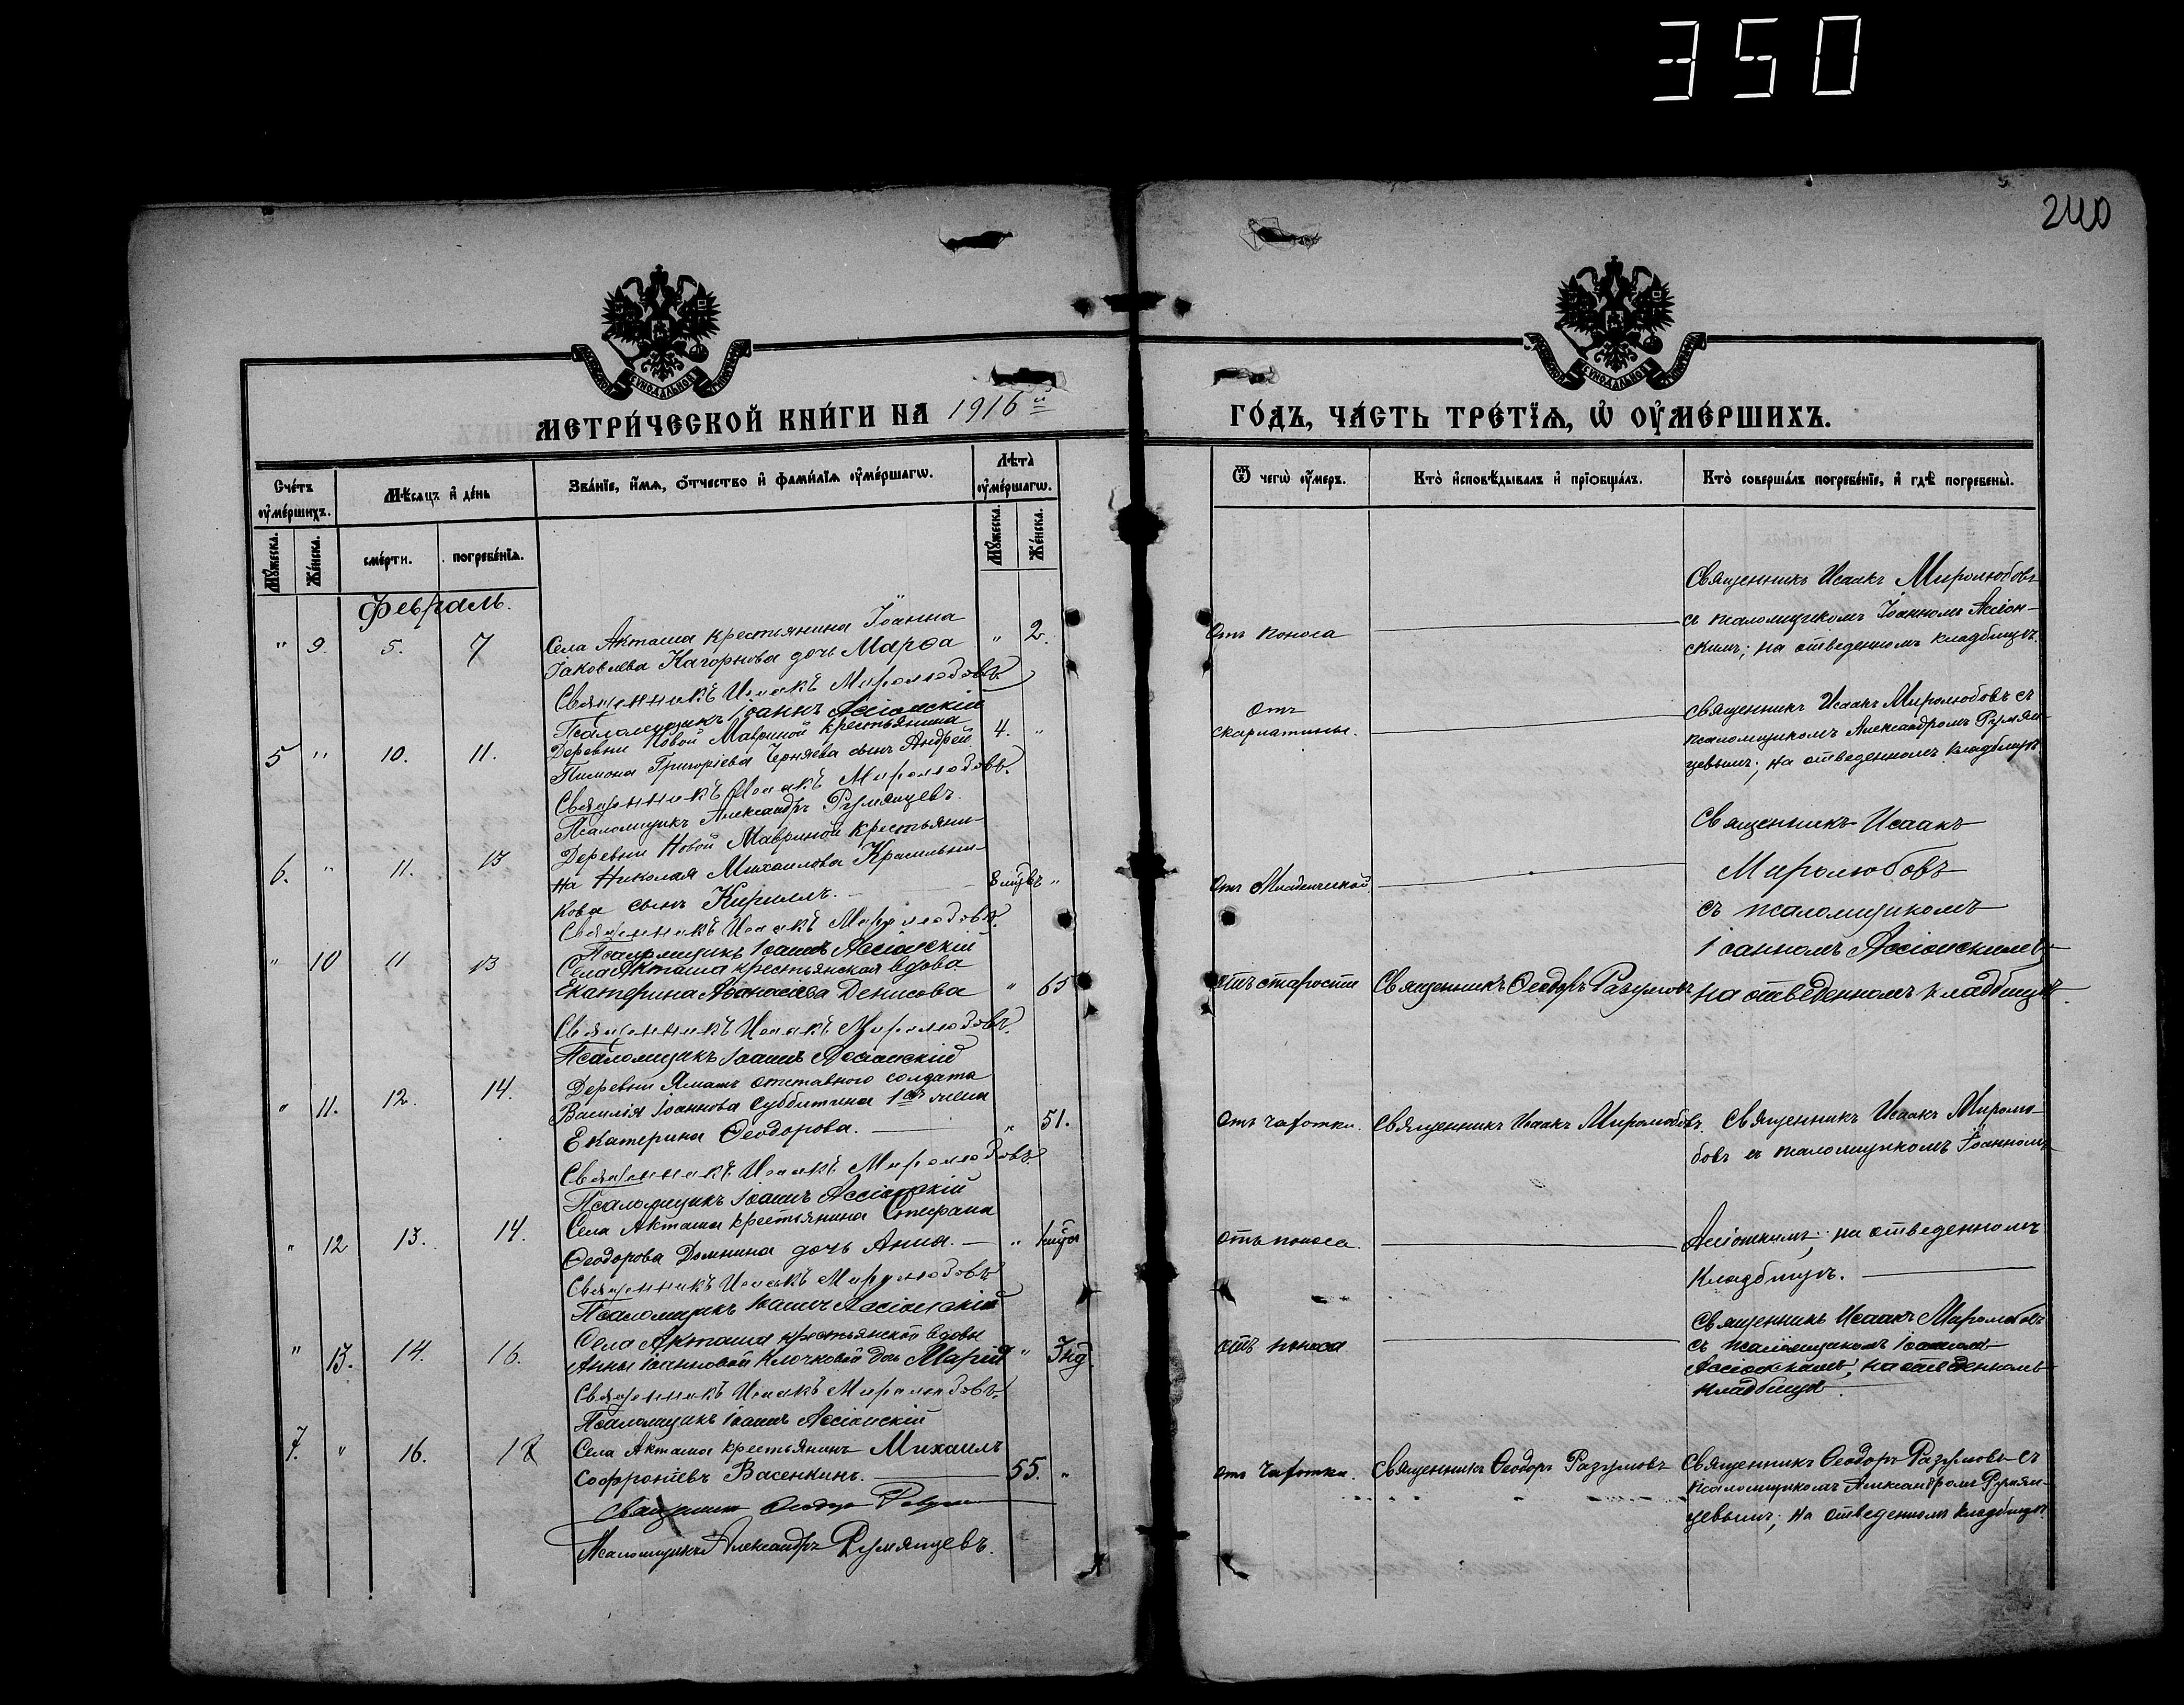 350
240
МЕТРИ́ЧЕСКОЙ КНИ́ГИ НА 1916й
ГО́ДЪ, ЧА́СТЬ ТРЕ́ТЇѦ, Ѡ ОУ҆МЕ́РШИХЪ.
Сче́тъ оу҆ме́ршихъ.
Мѣ́сяцъ и҆ де́нь
Зва́нїе, и҆́мѧ, ѻ҆́тчество и҆ фами́лїѧ оу҆ме́ршагѡ.
Лѣ́та оу҆ме́ршагѡ.
Ѿ чегѡ̀ оу҆́меръ.
Кто̀ и҆сповѣ́дывалъ и҆ прїѻбща́лъ.
Кто̀ соверша́лъ погребе́нїе, и҆ гдѣ̀ погребены̀.
Мꙋ́жеска.
Же́нска.
сме́рти.
погребе́нїѧ.
Мꙋ́жеска.
Же́нска.
Февраль.
" 9. 5. 7
Села Акташа крестьянина Іоанна
Іаковлева дочь Марѳа " 2.
Священникъ Исаакъ Миролюбовъ
Псаломщикъ Іоаннъ Ассіонскій
Отъ поноса
Священникъ Исаакъ Миролюбовъ
съ псаломщикомъ Іоанномъ Ассіон-
скимъ; на отведенномъ кладбищѣ.
5 " 10. 11.
Деревни Новой Мавриной крестьянина 4. "
Пимона Григоріева Черняева сынъ Андрей
Священникъ Исаакъ Миролюбовъ.
Псаломщикъ Александръ Румянцевъ.
Отъ
скарлатины.
Священникъ Исаакъ Миролюбовъ съ
псаломщикомъ Александромъ Румян-
цевымъ; на отведенномъ кладбищѣ
6. " 11. 13
Деревни Новой Мавриной крестьяни-
на Николая Михаилова Красильни-
кова сынъ Кириллъ. 8 "
Священникъ Исаакъ Миролюбовъ.
Псаломщикъ Іоаннъ Ассіонскій
Отъ Младенческой
Священникъ Исаакъ
Миролюбовъ
съ псаломщикомъ
Іоанномъ Ассіонскимъ
на отведенномъ кладбищѣ.
" 10 11 13
Села Акташа крестьянская вдова
Екатерина Аѳанасіева Денисова " 65
Священникъ Исаакъ Миролюбовъ.
Псаломщикъ Іоаннъ Ассіонскій
отъ старости Священникъ Ѳеодоръ Разумовъ
" 11. 12. 14.
Деревни Ямашъ отставного солдата
Василія Іоаннова Субботина
Екатерина Ѳеодорова. " 51.
Священникъ Исаакъ Миролюбовъ.
Псаломщикъ Іоаннъ Ассіонскій
Отъ чахотки. Священникъ Исаакъ Миролюбовъ. Священникъ Исаакъ Миролю-
бовъ съ псаломщикомъ Іоанномъ
" 12 13. 14.
Села Акташа крестьянина Стефана
Ѳеодорова Домнина дочь Анна. "
Священникъ Исаакъ Миролюбовъ
Псаломщикъ Іоаннъ Ассіонскій
отъ поноса.
Ассіонскимъ; на отведенномъ
кладбищѣ.
" 13. 14. 16.
Села Акташа крестьянской вдовы
Анны Іоанновой Клочковой дочь Марія "
Священникъ Исаакъ Миролюбовъ.
Псаломщикъ Іоаннъ Ассіонскій
отъ поноса
Священникъ Исаакъ Миролюбовъ
съ псаломщикомъ Іоанномъ
Ассіонскимъ, на отведенномъ
кладбищѣ.
7. " 16. 18
Села Акташа крестьянинъ Михаилъ
Софроніевъ Васенкинъ. 55. "
Священникъ Ѳеодоръ Разумовъ
Псаломщикъ Александръ Румянцевъ.
отъ чахотки. Священникъ Ѳеодоръ Разумовъ Священникъ Ѳеодоръ Разумовъ съ
псаломщикомъ Александромъ Румян-
цевымъ; на отведенномъ кладбищѣ.